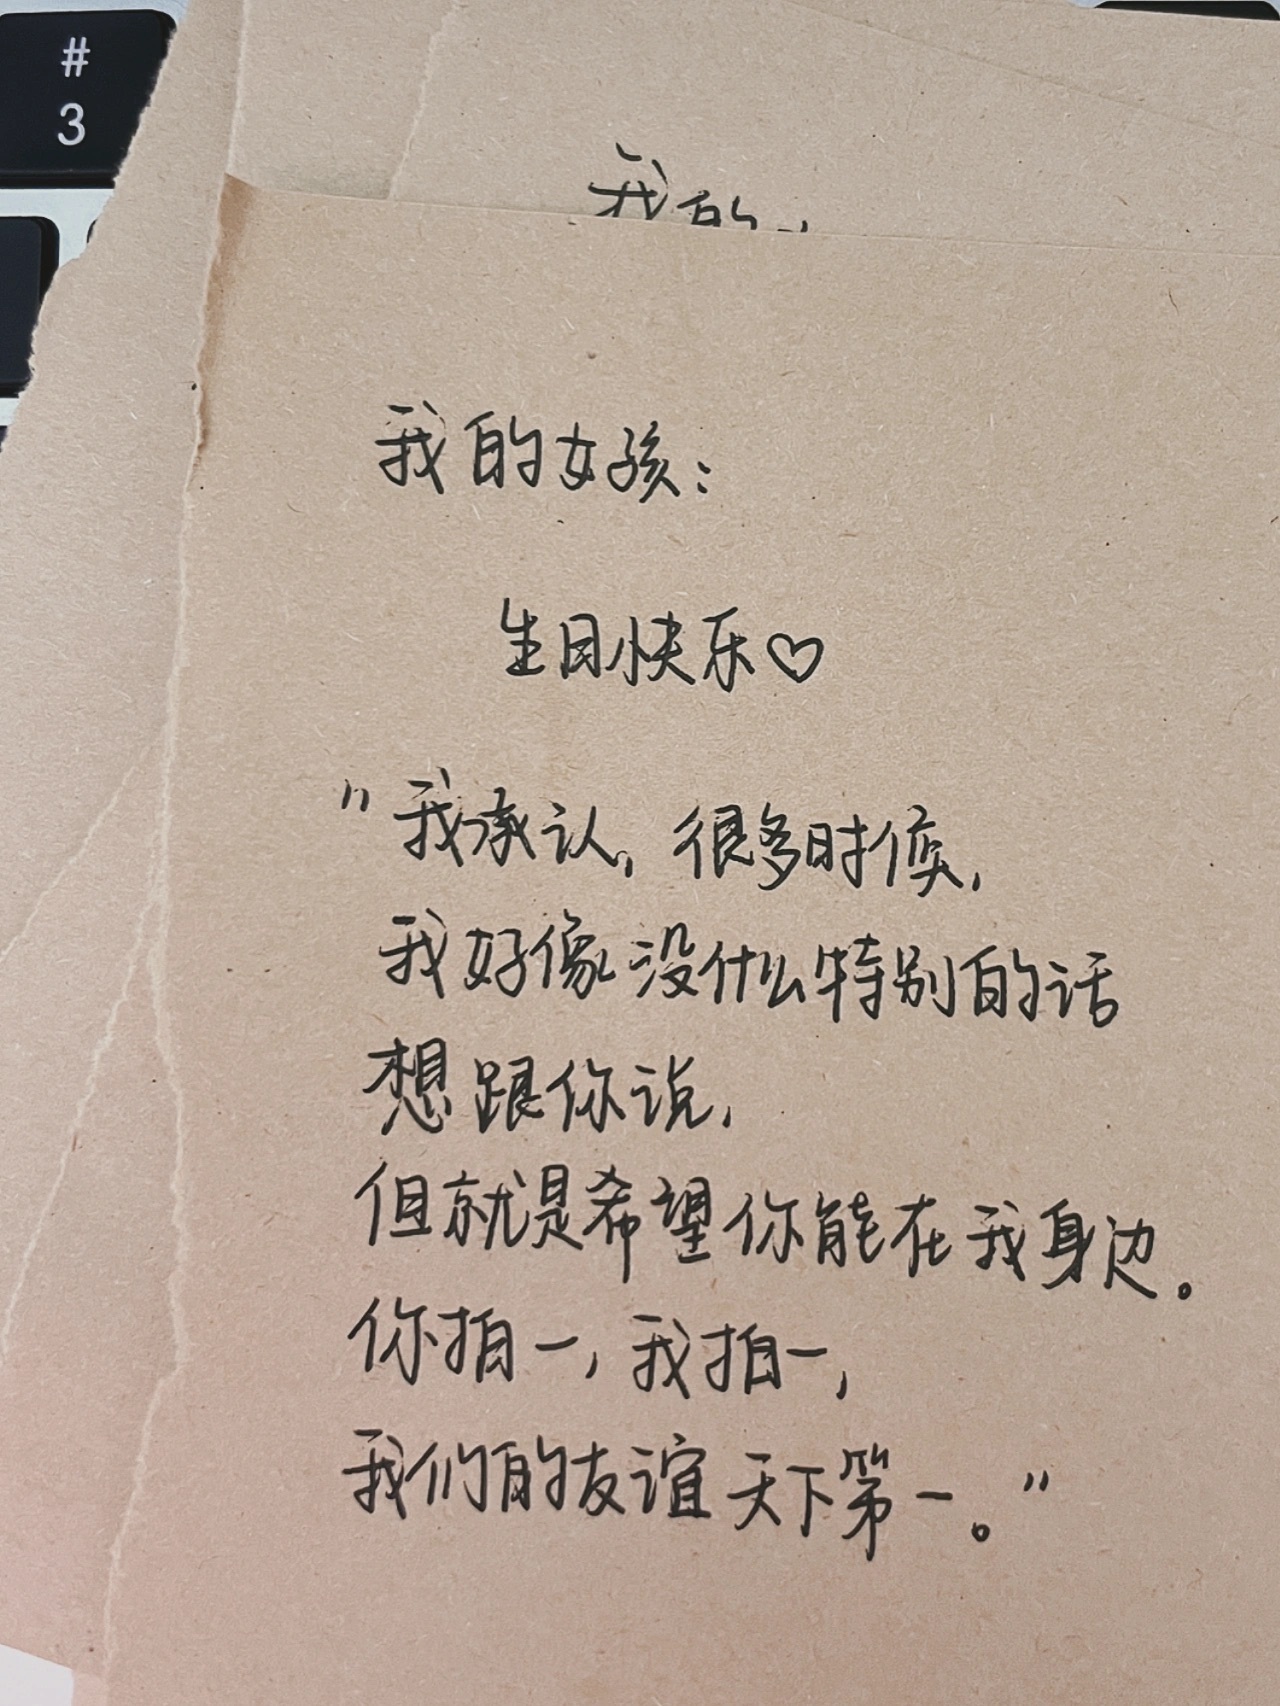 #
3
我的
我的女孩：
生日快乐♡
"我承认，很多时候，
我好像没什么特别的话
想跟你说，
但就是希望你能在我身边。
你拍一，我拍一，
我们的友谊天下第一。"